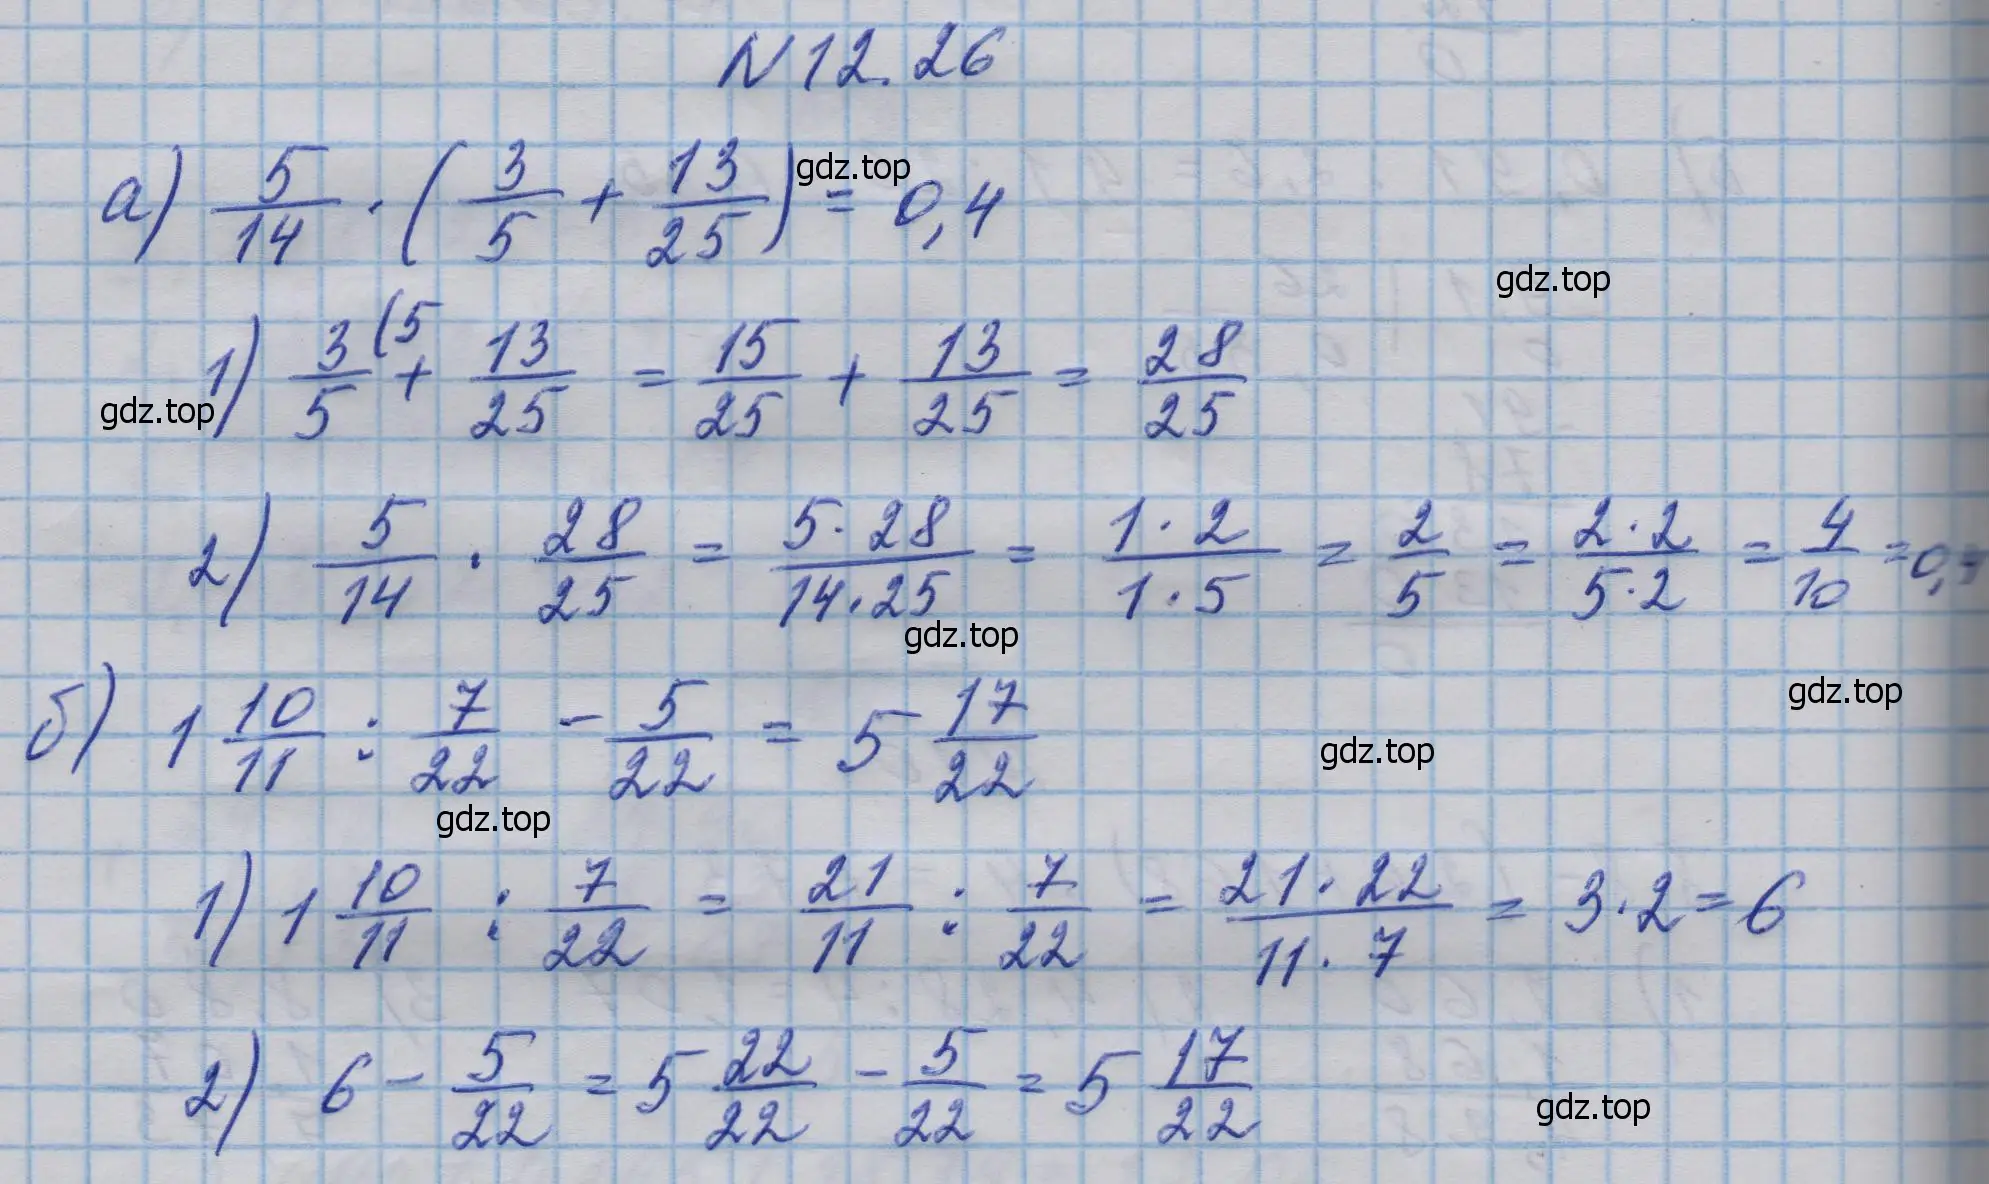 N 12.26
а) 5/14 · (3/5 + 13/25) = 0,4
gdz.top
gdz.top
1) 3/5 (5 + 13/25 = 15/25 + 13/25 = 28/25
gdz.top
2) 5/14 · 28/25 = 5·28/14·25 = 1·2/1·5 = 2/5 = 2·2/5·2 = 4/10 = 0,4
gdz.top
gdz.top
б) 1 10/11 : 7/22 - 5/22 = 5 17/22
gdz.top
gdz.top
1) 1 10/11 : 7/22 = 21/11 : 7/22 = 21·22/11·7 = 3·2 = 6
2) 6 - 5/22 = 5 22/22 - 5/22 = 5 17/22
gdz.top